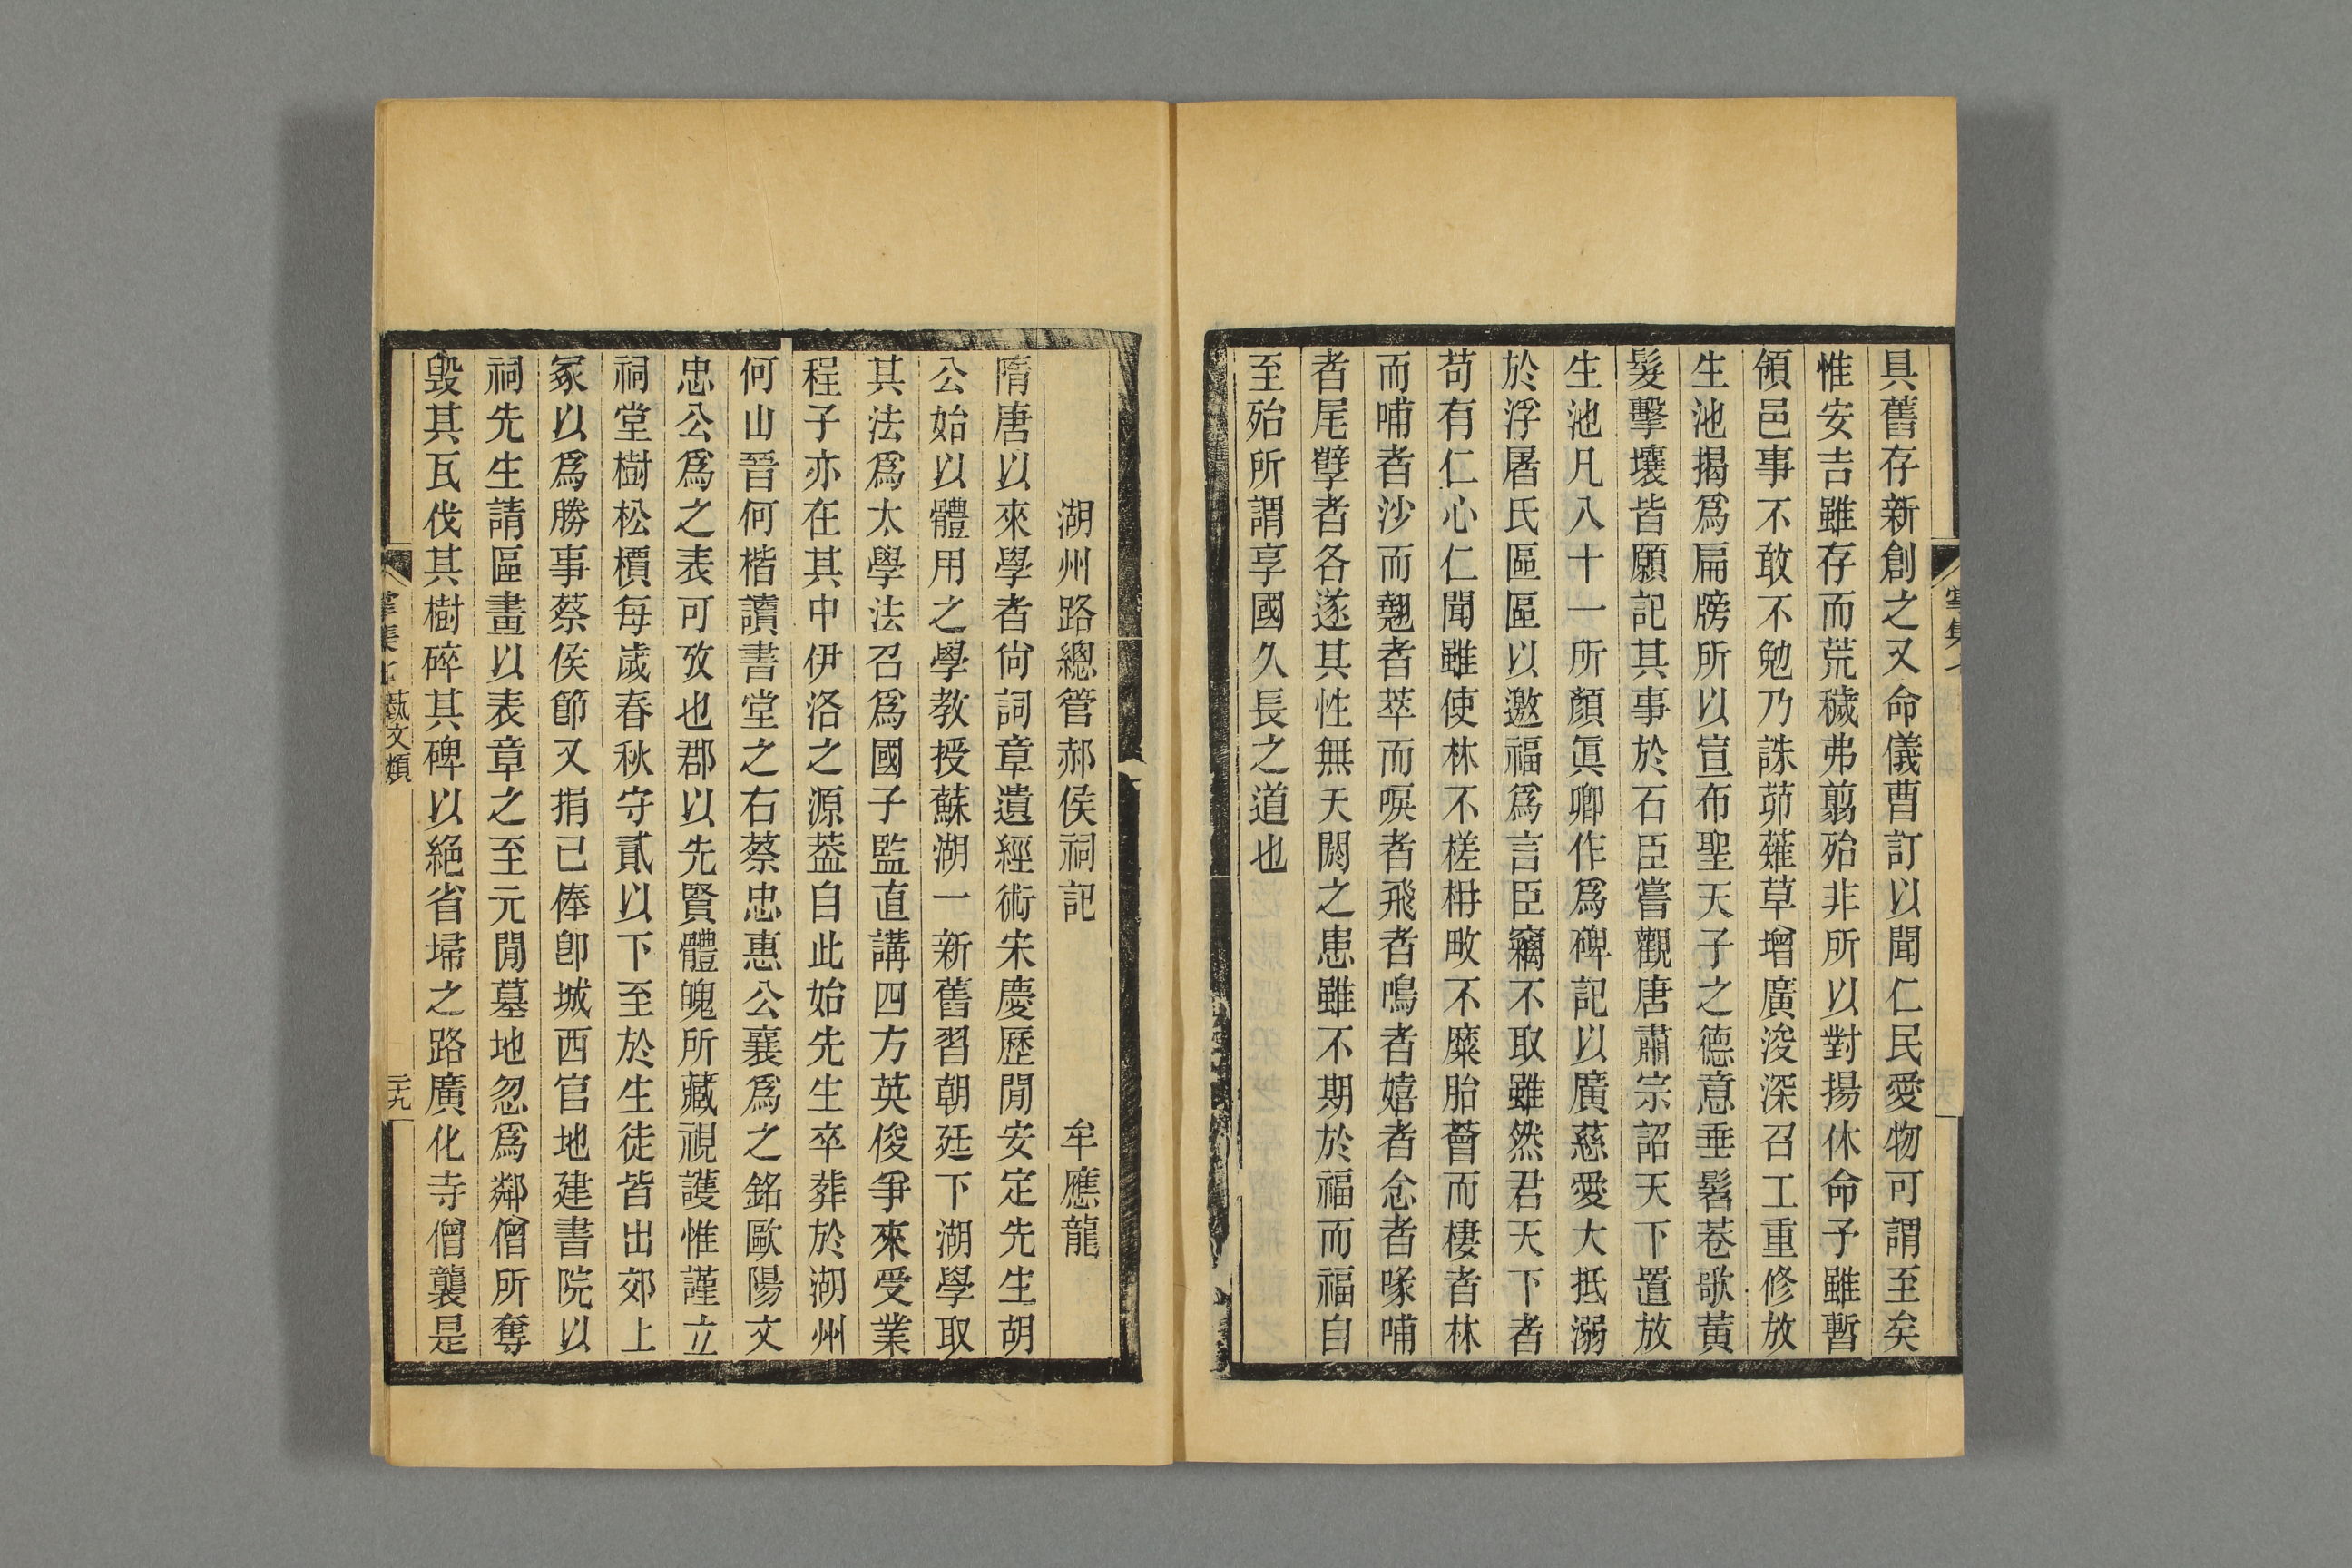 具舊存新創之又命儀曹訂以聞仁民愛物可謂至矣
惟安吉雖存而荒穢弗翦殆非所以對揚休命予雖暫
領邑事不敢不勉乃誅茆薙草增廣浚深召工重修放
生池揭爲扁牓所以宣布聖天子之德意垂髫蒼歌黃
髮擊壤皆願記其事於石臣嘗觀唐肅宗詔天下置放
生池凡八十一所顏眞卿作爲碑記以廣慈愛大抵溺
於浮屠氏區區以邀福爲言臣竊不取雖然君天下者
苟有仁心仁聞雖使林不槎枿畋不麋胎薈而棲者林
而哺者沙而翹者萃而唳者飛者鳴者嬉者念者喙哺
者尾孳者各遂其性無夭閼之患雖不期於福而福自
至殆所謂享國久長之道也
湖州路總管郝侯祠記　牟應龍
隋唐以來學者尙詞章遺經術宋慶歷閒安定先生胡
公始以體用之學教授蘇湖一新舊習朝廷下湖學取
其法爲太學法召爲國子監直講四方英俊爭來受業
程子亦在其中伊洛之源葢自此始先生卒葬於湖州
何山晉何楷讀書堂之右蔡忠惠公襄爲之銘歐陽文
忠公爲之表可攷也郡以先賢體魄所藏視護惟謹立
祠堂樹松檟每歲春秋守貳以下至於生徒皆出郊上
冢以爲勝事蔡侯節又捐己俸卽城西官地建書院以
祠先生請區畫以表章之至元閒墓地忽爲鄰僧所奪
毀其瓦伐其樹碎其碑以絕省埽之路廣化寺僧襲是
藝文類
三十九